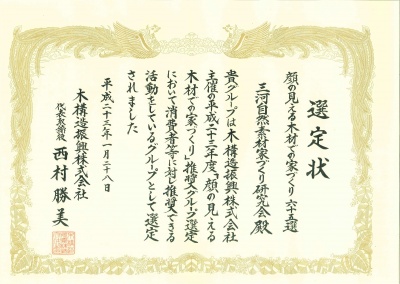 選定状
顔の見える木材での家づくり 六五選
三河自然素材家づくり研究会 殿
貴グループは木構造振興株式会社
主催の平成二十三年度「顔の見える
木材での家づくり」推奨グループ選定
において消費者等に対し推奨できる
活動をしているグループとして選定
されました
平成二十三年一月二十八日
木構造振興株式会社
代表取締役 西村勝美